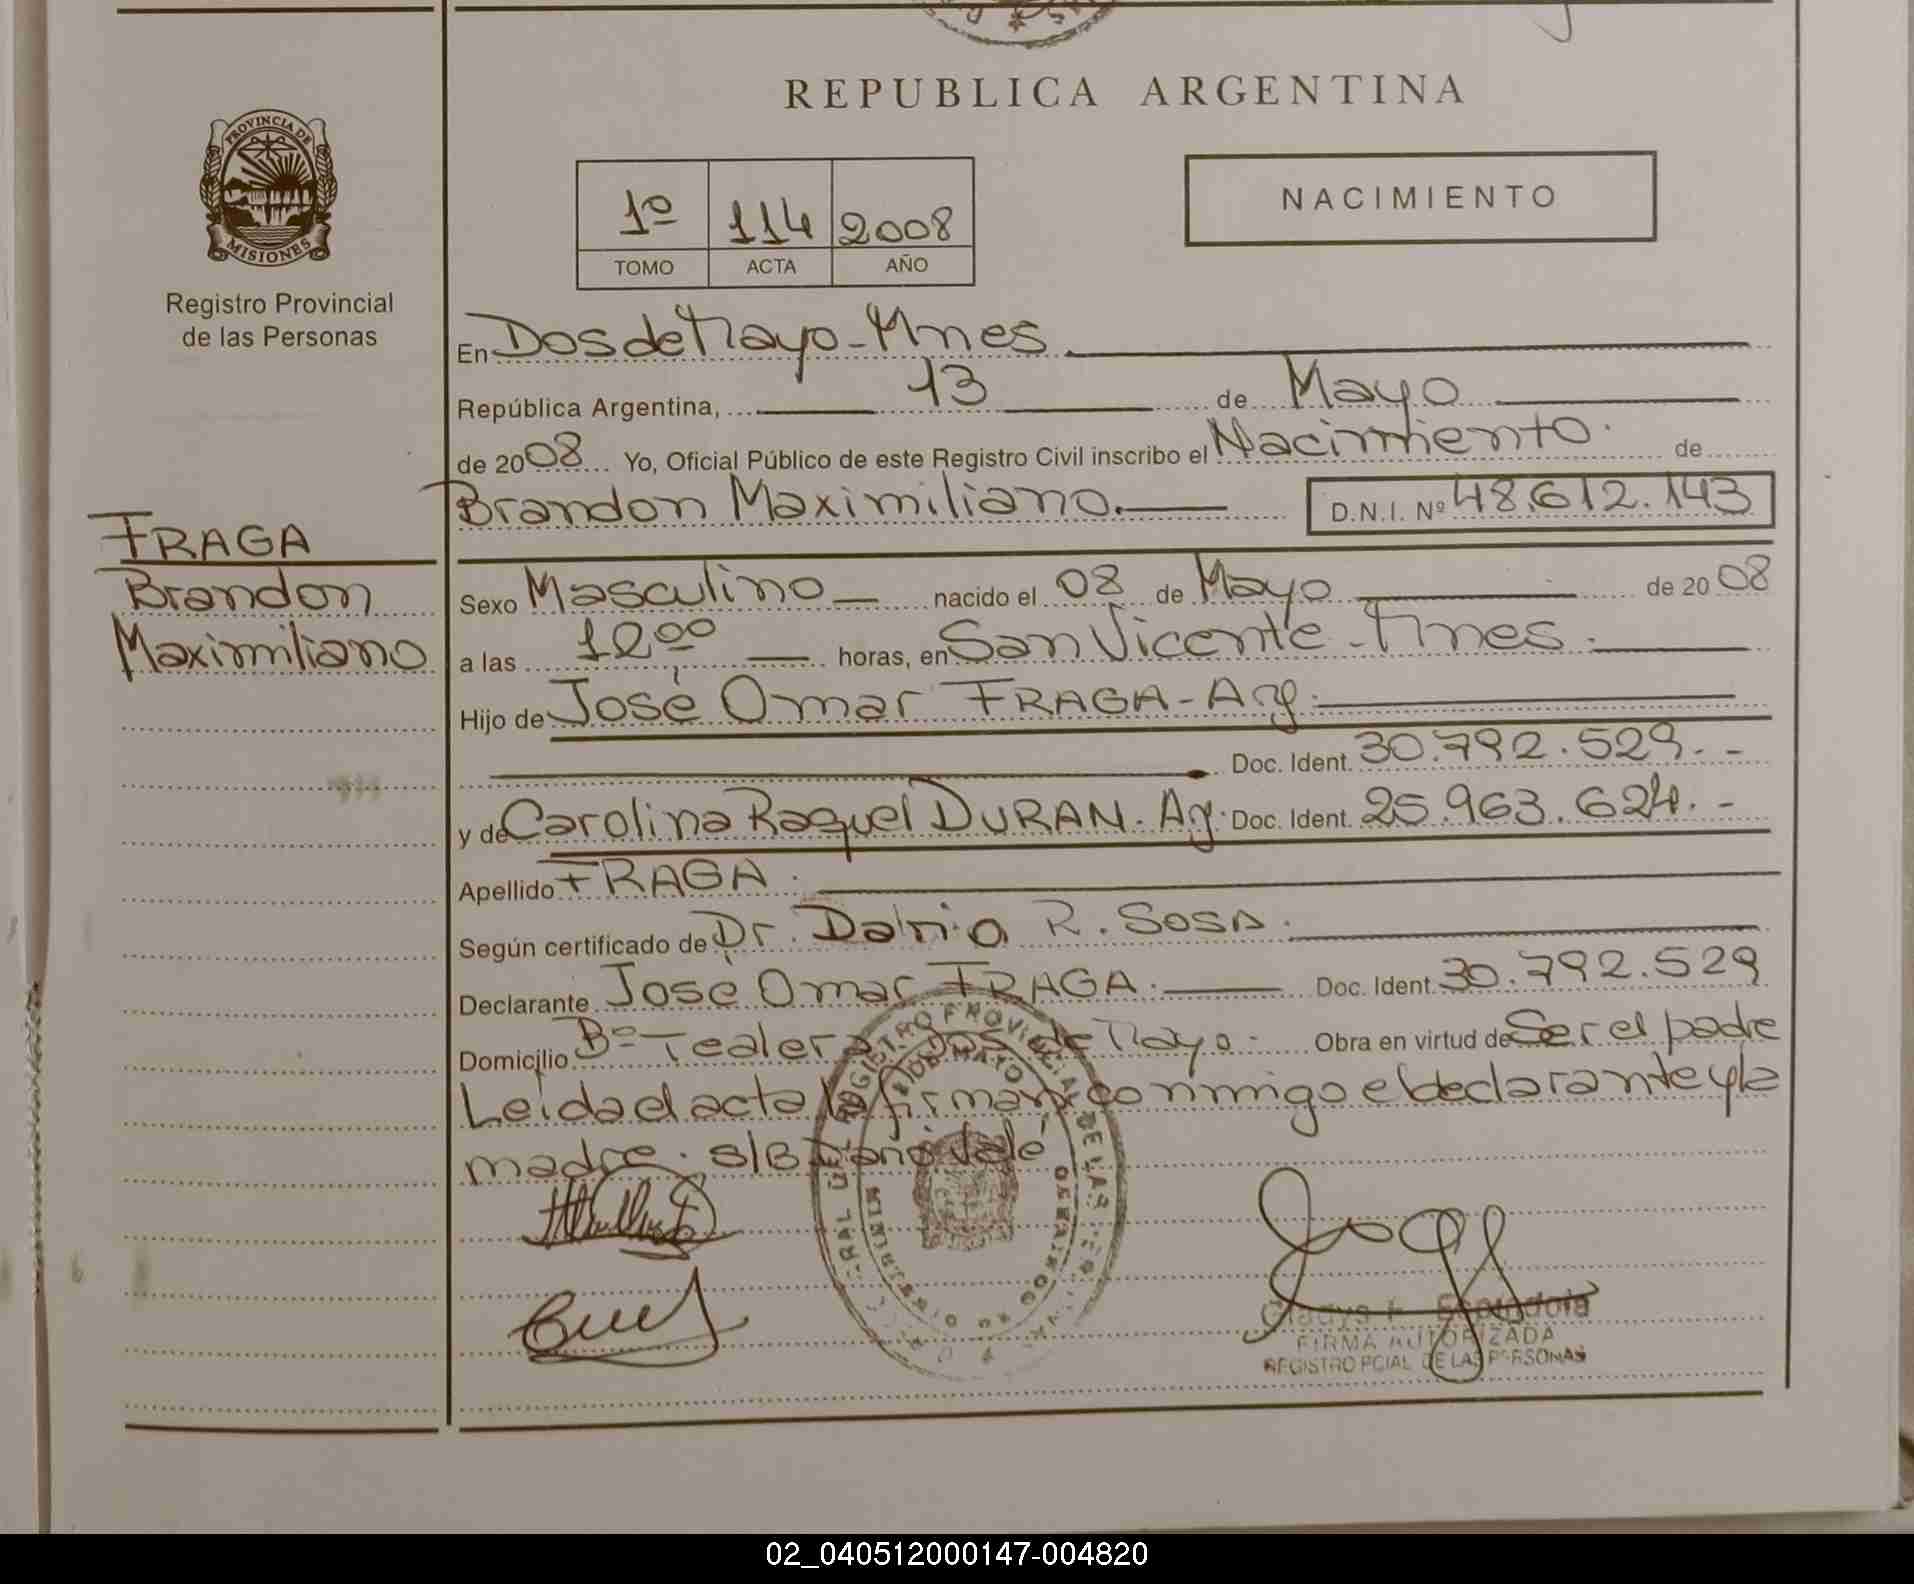 REPUBLICA ARGENTINA
PROVINCIA DE
MISIONES
Registro Provincial
de las Personas
1º 114 2008
TOMO ACTA AÑO
NACIMIENTO
En Dos de Mayo - Mnes
República Argentina, 13 de Mayo
de 2008 Yo, Oficial Público de este Registro Civil inscribo el Nacimiento. de
Brandon Maximiliano. D.N.I. Nº 48.612.143
FRAGA
Brandon
Maximiliano
Sexo Masculino nacido el 08 de Mayo de 2008
a las 12 00 horas, en San Vicente - Mnes.
Hijo de José Omar FRAGA - Arg.
Doc. Ident. 30.792.529.-
y de Carolina Raquel DURAN. Ag. Doc. Ident. 25.963.624.-
Apellido FRAGA.
Según certificado de Dr. Dario R. Sosa.
Declarante José Omar FRAGA. Doc. Ident. 30.792.529
Domicilio Bº Tealero Dos de Mayo. Obra en virtud de Ser el padre
Leida el acta la firman conmigo el declarante y la
madre. S/B
FIRMA AUTORIZADA
REGISTRO PCIAL DE LAS PERSONAS
02_040512000147-004820